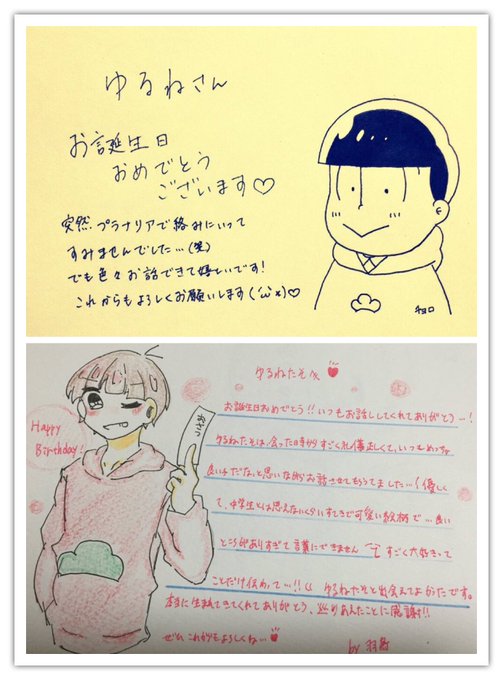 ゆるねさん
お誕生日
おめでとう
ございます♡
突然プラナリアで絡みにいって
すみませんでした…(笑)
でも色々お話できて嬉しいです!
これからもよろしくお願いします(´ω`)♡
チョロ
ゆるねたそ
Happy
Birthday!
お誕生日おめでとう!!いつもお話ししてくれてありがとうー!
ゆるねたそは、会った日からすごく礼儀正しくて、いつもめっちゃ
良い子だな、と思いながらお話させてもらってました…!優しく
て、中学生とは思えないくらいすてきで可愛い絵柄で…良い
ところがありすぎて言葉にできません すごく大好きって
ことだけ伝わって…!! ゆるねたそと出会えてよかったです。
本当に生まれてきてくれてありがとう、巡りあえたことに感謝!!
ぜひこれからもよろしくね…
by